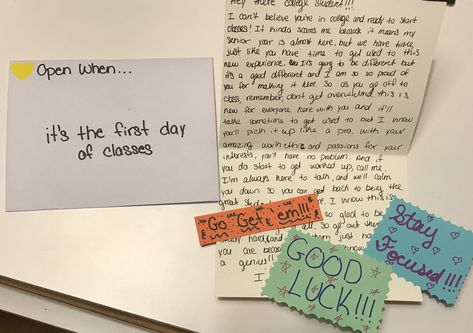 Open When...
it's the first day
of classes
Hey there college student!!!
I can't believe you're in college and ready to start
classes! It kinda scares me because it means my
senior year is almost here, but we have time,
just like you have time to get used to this
new experience. It's going to be different but
it's a good different and I am so so proud of
you for making it here. So as you go off to
class, remember, don't get overwhelmed this is
new for everyone here with you and it'll
take sometime to get used to but I know
you'll pick it up like a pro. with your
amazing work ethic and passions for your
interests, you'll have no problem. And if
you do start to get worked up, call me.
I'm always here to talk, and we'll calm
you down so you can get back to being the
great I know this is
so glad to be
so get out there
hard just
you are
a genius!!
I
Go Get em!!!
GOOD
LUCK!!!
Stay
Focused!!!